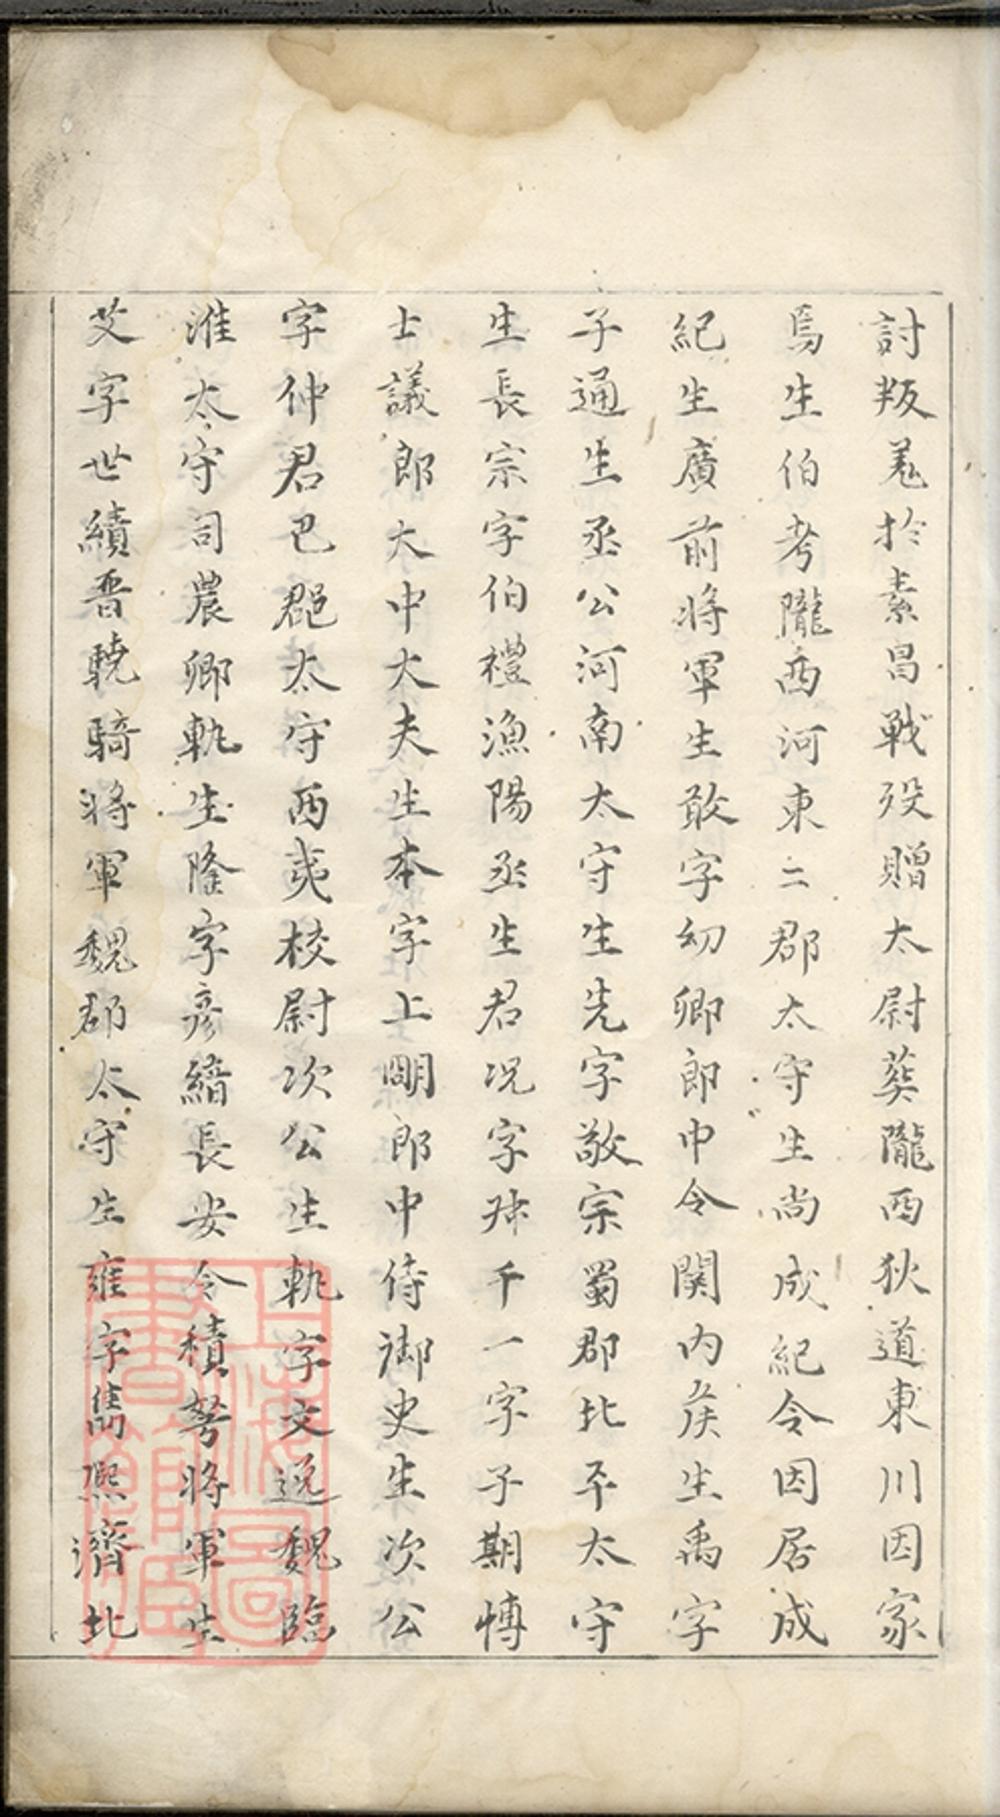 討叛羌於素昌戰歿贈太尉葬隴西狄道東川因家
焉生伯考隴西河東二郡太守生尚成紀令因居成
紀生廣前將軍生敢字幼卿郎中令關内侯生禹字
子通生丞公河南太守生先字敬宗蜀郡北平太守
生長宗字伯禮漁陽丞生君况字叔千一字子期博
士議郎大中大夫生本字上明郎中侍御史生次公
字仲君巴郡太守西夷校尉次公生軌字文逸魏臨
淮太守司農卿軌生隆字彦緇長安令積弩將軍生
艾字世績晋驍騎將軍魏郡太守生雍字雋熙濟北
上海圖書館藏